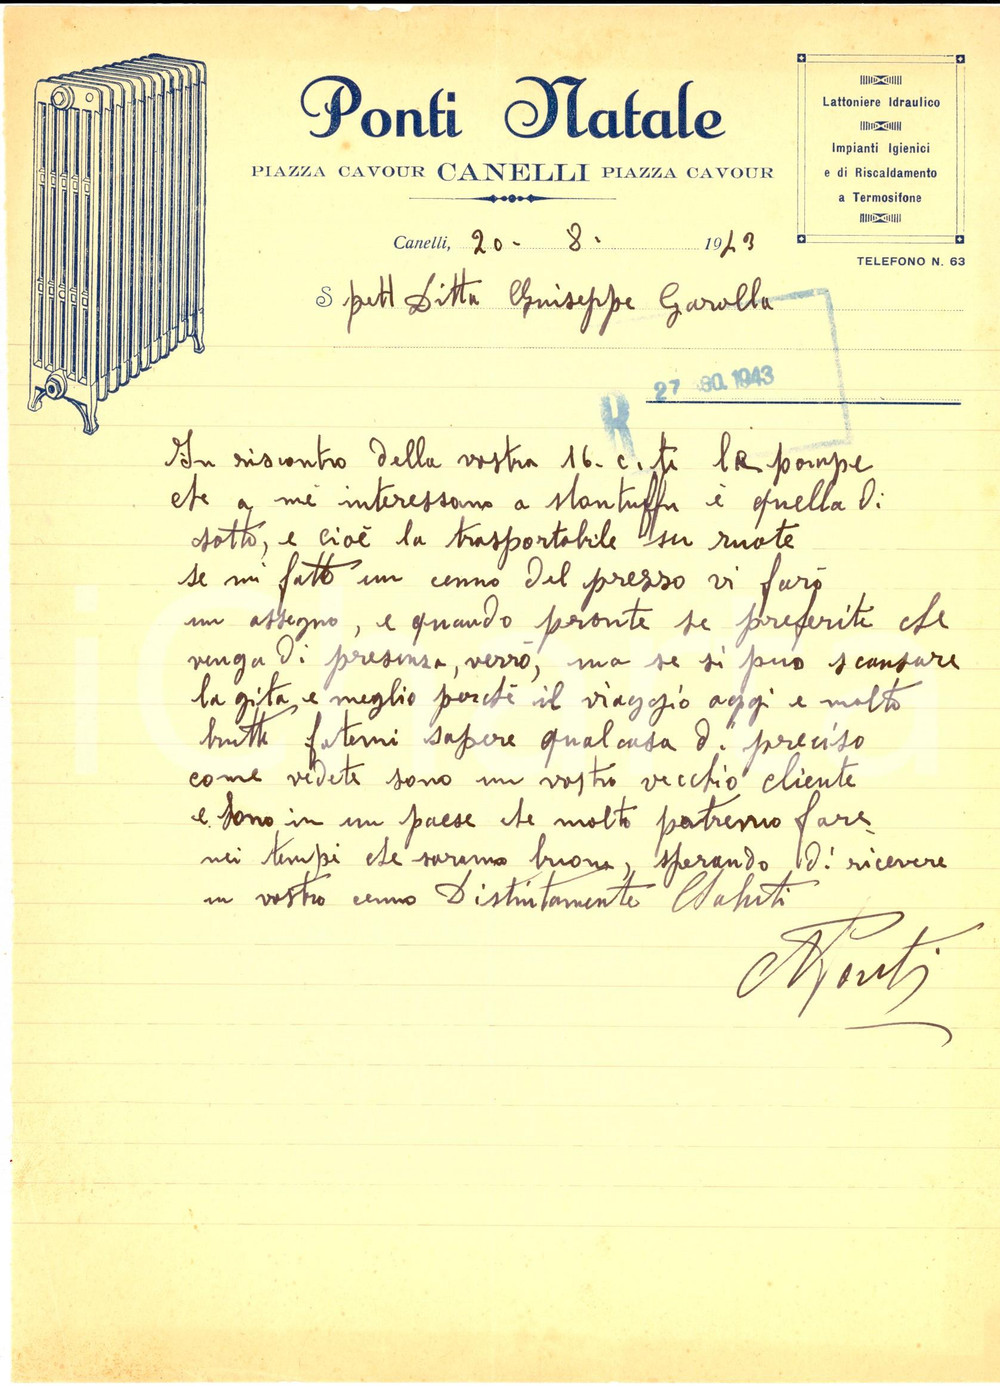 Ponti Natale
PIAZZA CAVOUR CANELLI PIAZZA CAVOUR
Lattoniere Idraulico
Impianti Igienici
e di Riscaldamento
a Termosifone
TELEFONO N. 63
Canelli, 20 - 8 - 1943
Spett Ditta Giuseppe Garolla
27 AGO. 1943
In riscontro della vostra 16. c. te la pompe
che a me interessano a stantuffu è quella di
sotto, e cioè la trasportabile su ruote
se mi fatte un cenno del prezzo vi farò
un assegno, e quando pronte se preferite che
venga di presenza, verrò, ma se si può scansare
la gita, e meglio perchè il viaggio oggi e molto
brutto fatemi sapere qualcosa di preciso
come vedete sono un vostro vecchio cliente
e sono in un paese che molto potremo fare
nei tempi che saranno buoni, sperando di ricevere
un vostro cenno Distintamente Saluti
N Ponti